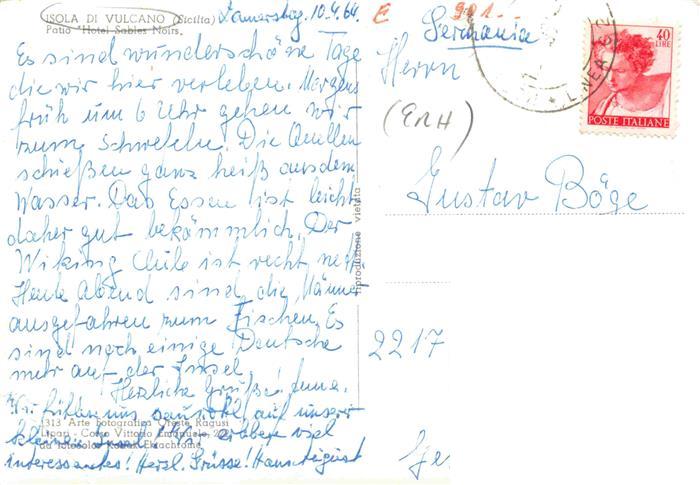 ISOLA DI VULCANO (Sicilia)
Patio "Hotel Sables Noirs"
Donnerstag, 10.4.64.
Es sind wunderschöne Tage
die wir hier verleben. Morgens
früh um 6 Uhr gehen wir
zum Schwefeln. Die Quellen
schießen ganz heiß aus dem
Wasser. Das Essen ist leicht
daher gut bekömmlich. Der
Wiking Club ist recht nett.
Heute Abend sind die Männer
ausgefahren zum Fischen. Es
sind noch einige Deutsche
mehr auf der Insel.
Herzliche Grüße!
Wir fühlen uns sauwohl auf unserer
kleinen Insel! Wir erleben viel
interessantes! Herzl. Grüsse! Hansaugust
1313 Arte Fotografica Oreste Ragusi
Lipari - Corso Vittorio Emanuele,
da fotocolor Kodak Ektachrome
riproduzione vietata
E 901-
Germania
Herrn
(ERH)
Gustav Böge
2217
40
LIRE
POSTE ITALIANE